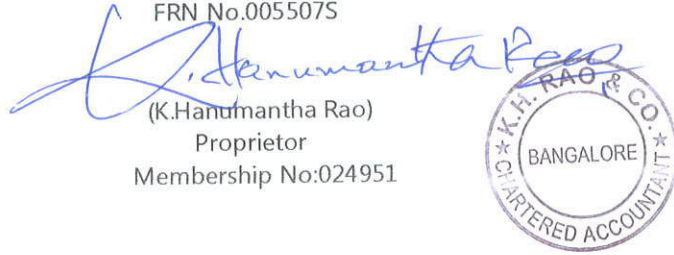 FRN No.005507S
K.Hanumantha Rao
(K.Hanumantha Rao)
Proprietor
Membership No:024951
K.H. RAO & CO.
BANGALORE
★ CHARTERED ACCOUNTANT ★